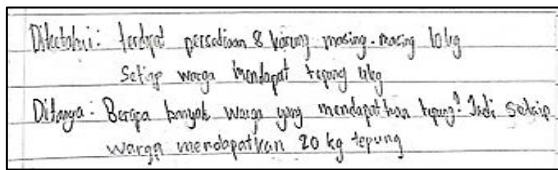 Diketahui: terdapat persediaan 8 karung masing-masing 10 kg
Setiap warga mendapat tepung 4kg
Ditanya: Berapa banyak warga yang mendapatkan tepung? Jadi setiap
warga mendapatkan 20 kg tepung